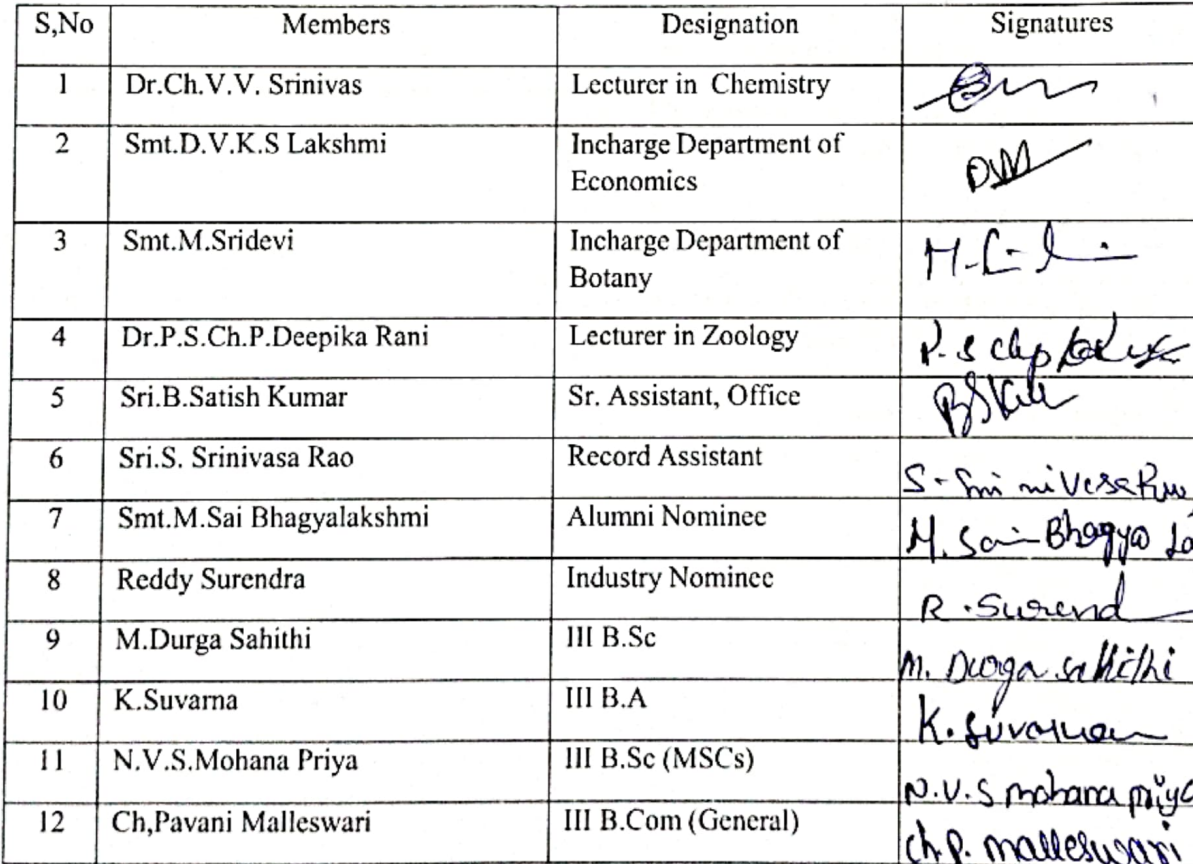 S,No Members Designation Signatures
1 Dr.Ch.V.V. Srinivas Lecturer in Chemistry
2 Smt.D.V.K.S Lakshmi Incharge Department of
Economics
3 Smt.M.Sridevi Incharge Department of
Botany
4 Dr.P.S.Ch.P.Deepika Rani Lecturer in Zoology
5 Sri.B.Satish Kumar Sr. Assistant, Office
6 Sri.S. Srinivasa Rao Record Assistant
7 Smt.M.Sai Bhagyalakshmi Alumni Nominee M. Sai Bhagya La
8 Reddy Surendra Industry Nominee R. Surend
9 M.Durga Sahithi III B.Sc M. Durga sahithi
10 K.Suvarna III B.A K. Suvarna
11 N.V.S.Mohana Priya III B.Sc (MSCs) N.V.S mohana priya
12 Ch,Pavani Malleswari III B.Com (General) ch.P. malleswari